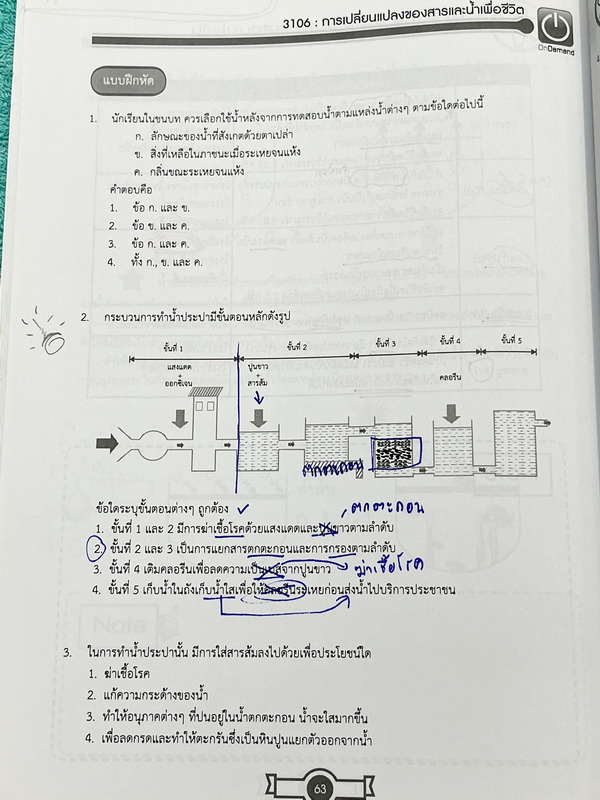 3106 : การเปลี่ยนแปลงของสารและน้ำเพื่อชีวิต
OnDemand
แบบฝึกหัด
1. นักเรียนในชนบท ควรเลือกใช้น้ำหลังจากการทดสอบน้ำตามแหล่งน้ำต่างๆ ตามข้อใดต่อไปนี้
ก. ลักษณะของน้ำที่สังเกตด้วยตาเปล่า
ข. สิ่งที่เหลือในภาชนะเมื่อระเหยจนแห้ง
ค. กลิ่นขณะระเหยจนแห้ง
คำตอบคือ
1. ข้อ ก. และ ข.
2. ข้อ ข. และ ค.
3. ข้อ ก. และ ค.
4. ทั้ง ก., ข. และ ค.
2. กระบวนการทำน้ำประปามีขั้นตอนหลักดังรูป
ขั้นที่ 1 ขั้นที่ 2 ขั้นที่ 3 ขั้นที่ 4 ขั้นที่ 5
แสงแดด ปูนขาว
+ +
ออกซิเจน สารส้ม คลอรีน
ตกตะกอน
ข้อใดระบุขั้นตอนต่างๆ ถูกต้อง
ตกตะกอน
1. ขั้นที่ 1 และ 2 มีการฆ่าเชื้อโรคด้วยแสงแดดและปูนขาวตามลำดับ
2. ขั้นที่ 2 และ 3 เป็นการแยกสารตกตะกอนและการกรองตามลำดับ
3. ขั้นที่ 4 เติมคลอรีนเพื่อลดความเป็นเบสจากปูนขาว ฆ่าเชื้อโรค
4. ขั้นที่ 5 เก็บน้ำในถังเก็บน้ำใสเพื่อให้คลอรีนระเหยก่อนส่งน้ำไปบริการประชาชน
3. ในการทำน้ำประปานั้น มีการใส่สารส้มลงไปด้วยเพื่อประโยชน์ใด
1. ฆ่าเชื้อโรค
2. แก้ความกระด้างของน้ำ
3. ทำให้อนุภาคต่างๆ ที่ปนอยู่ในน้ำตกตะกอน น้ำจะใสมากขึ้น
4. เพื่อลดกรดและทำให้ตะกรันซึ่งเป็นหินปูนแยกตัวออกจากน้ำ
63